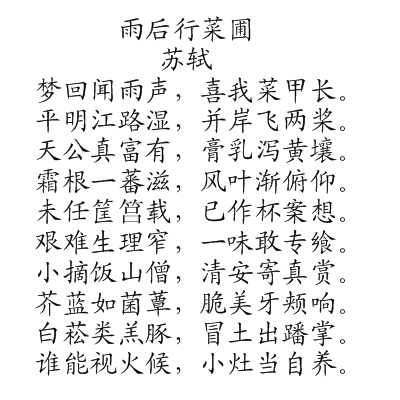 雨后行菜圃
苏轼
梦回闻雨声，喜我菜甲长。
平明江路湿，并岸飞两桨。
天公真富有，膏乳泻黄壤。
霜根一蕃滋，风叶渐俯仰。
未任筐筥载，已作杯案想。
艰难生理窄，一味敢专飨。
小摘饭山僧，清安寄真赏。
芥蓝如菌蕈，脆美牙颊响。
白菘类羔豚，冒土出蹯掌。
谁能视火候，小灶当自养。